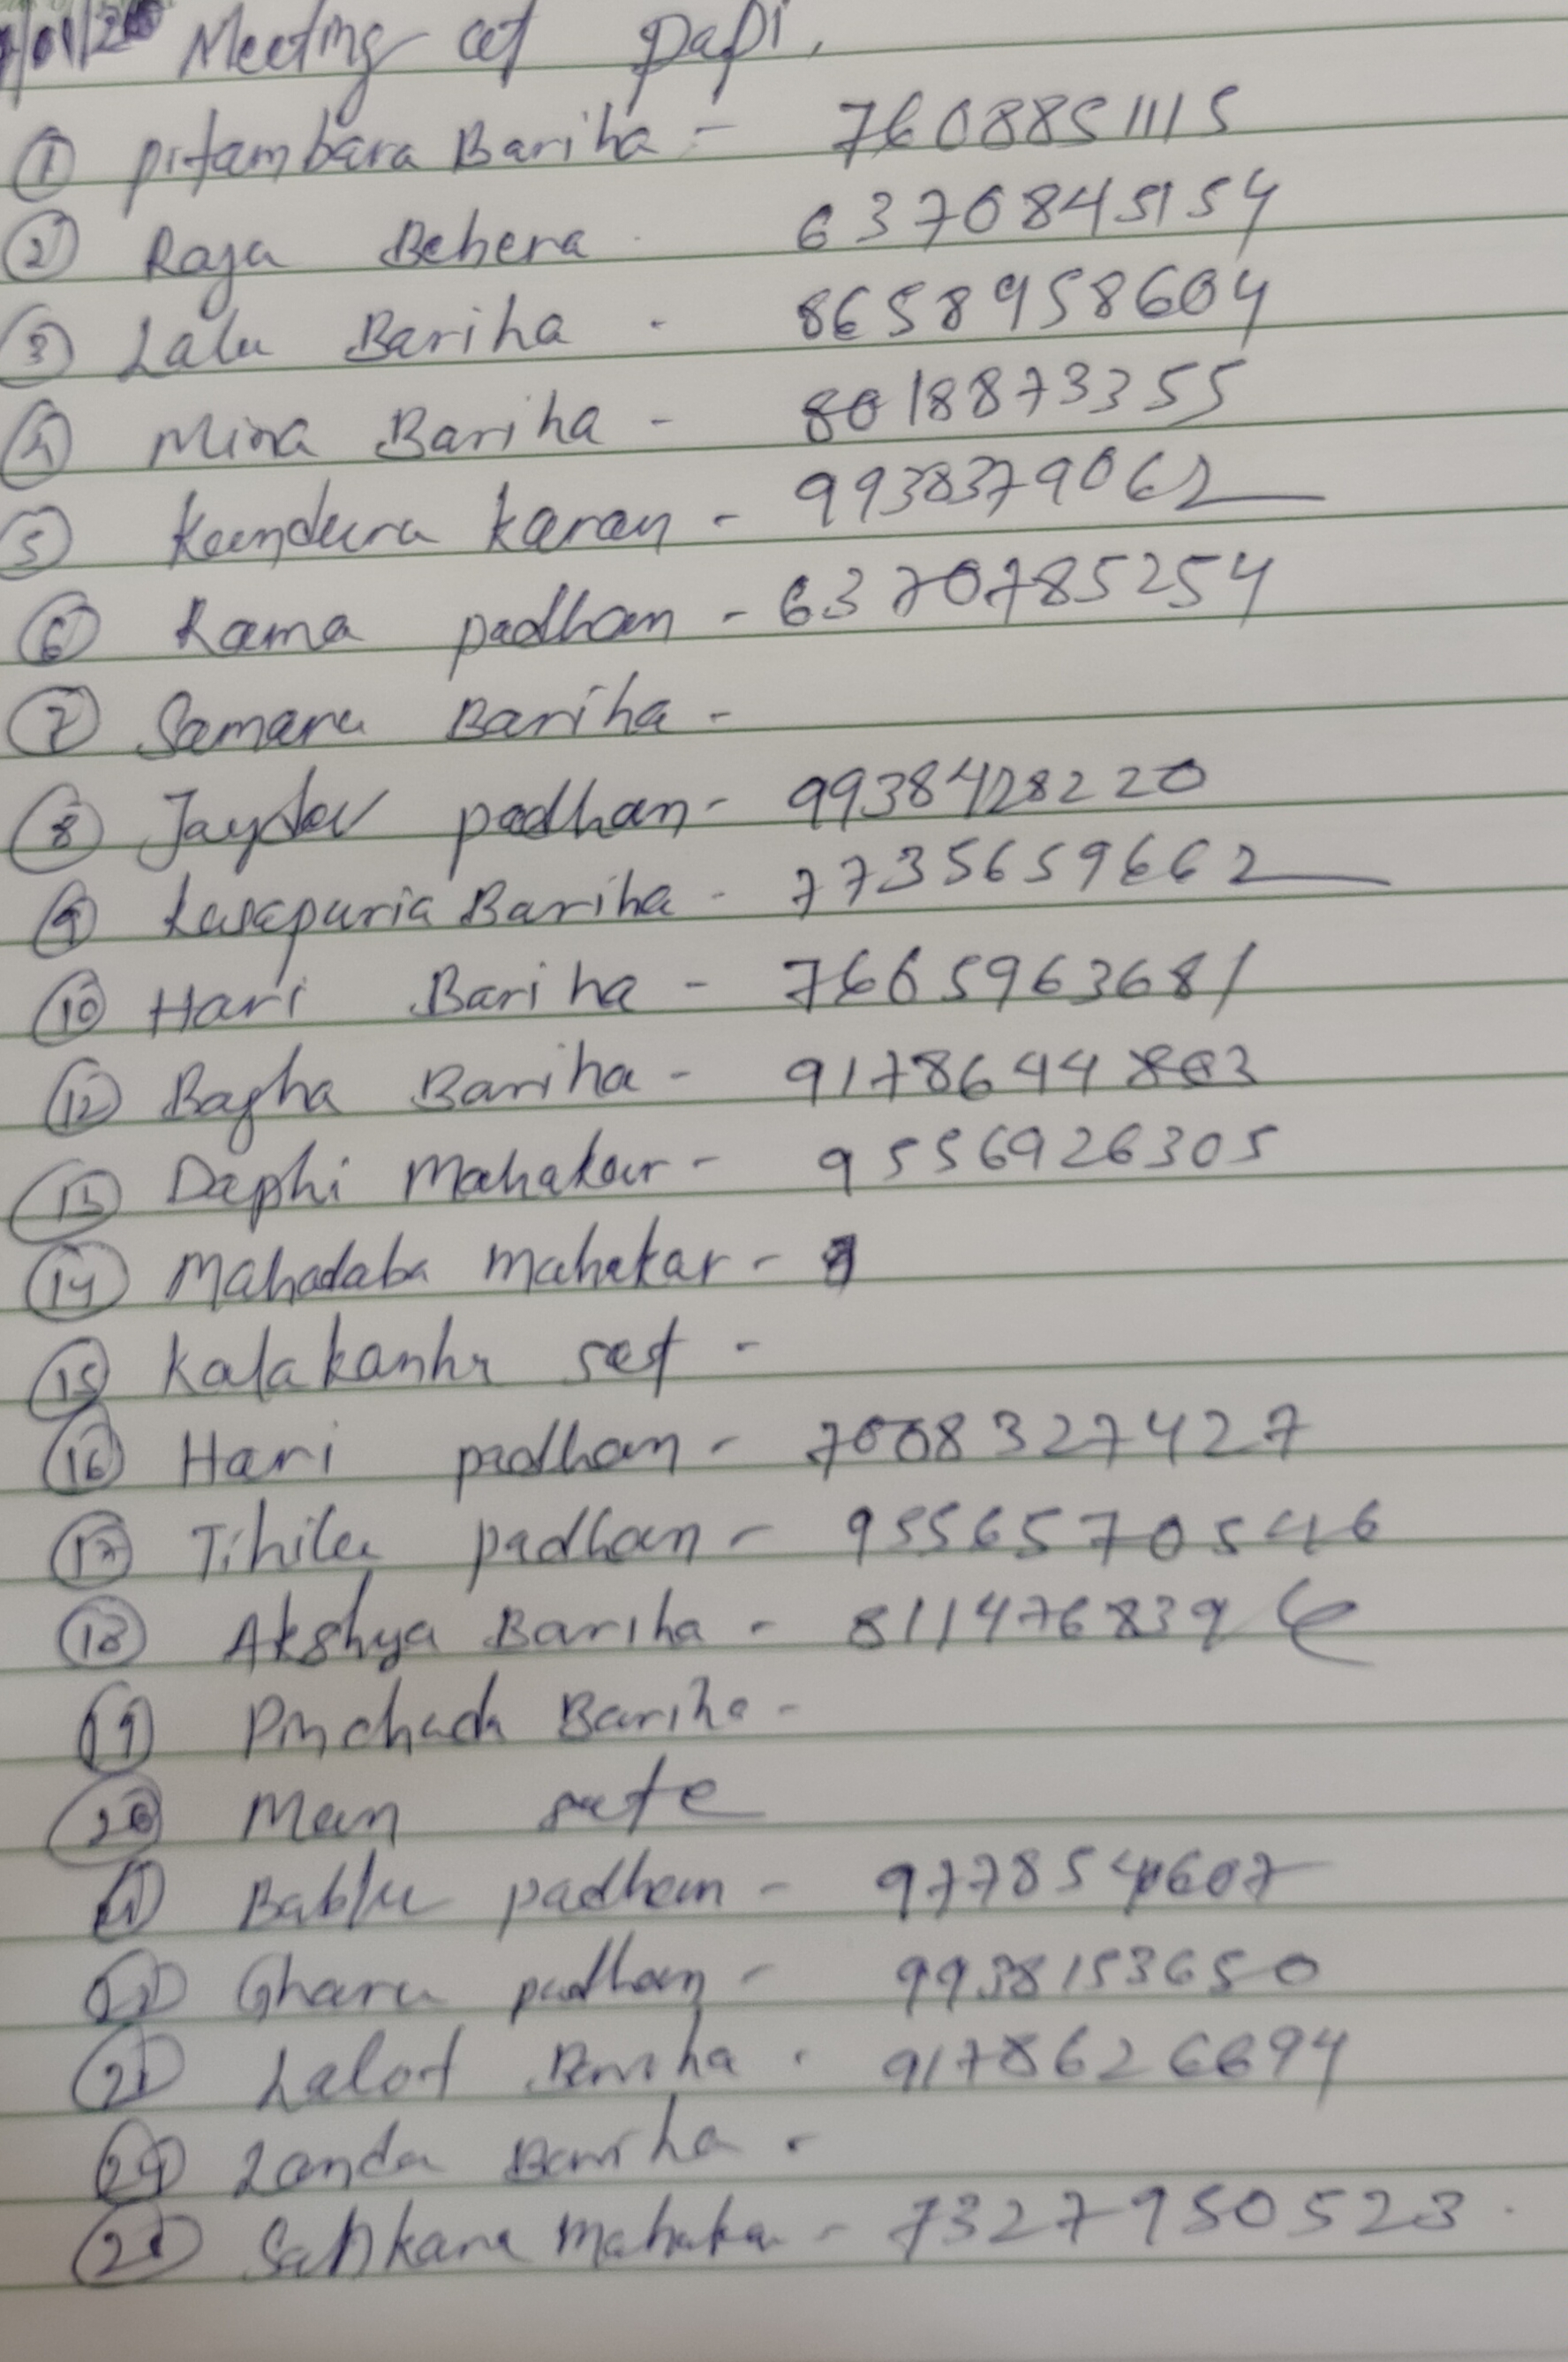 /01/2 Meeting at papi,
① pitambara Bariha - 7608851115
② Raja Behera - 6370845154
③ Lalu Bariha - 8658958604
④ Mina Bariha - 8018873355
⑤ Kundura Karan - 9938379062
⑥ Rama padhan - 6370785254
⑦ Samaru Bariha -
⑧ Jaydev padhan - 9938428220
⑨ Bariha - 7735659662
⑩ Hari Bariha - 7665963681
⑫ Bagha Bariha - 9178644803
⑬ Daphi Mahakur - 9556926305
⑭ Mahadaba mahakar -
⑮ Kalakanhu set -
⑯ Hari padhan - 7008327427
⑰ Tihilu padhan - 9556570546
⑱ Akshya Bariha - 811476839
⑲ Bariha -
⑳ Man sate
Bablu padhan -
Gharu padhan - 9938153650
Lalot Bariha - 9178626694
㉔ Landa Bariha -
Mahakur - 7327950523